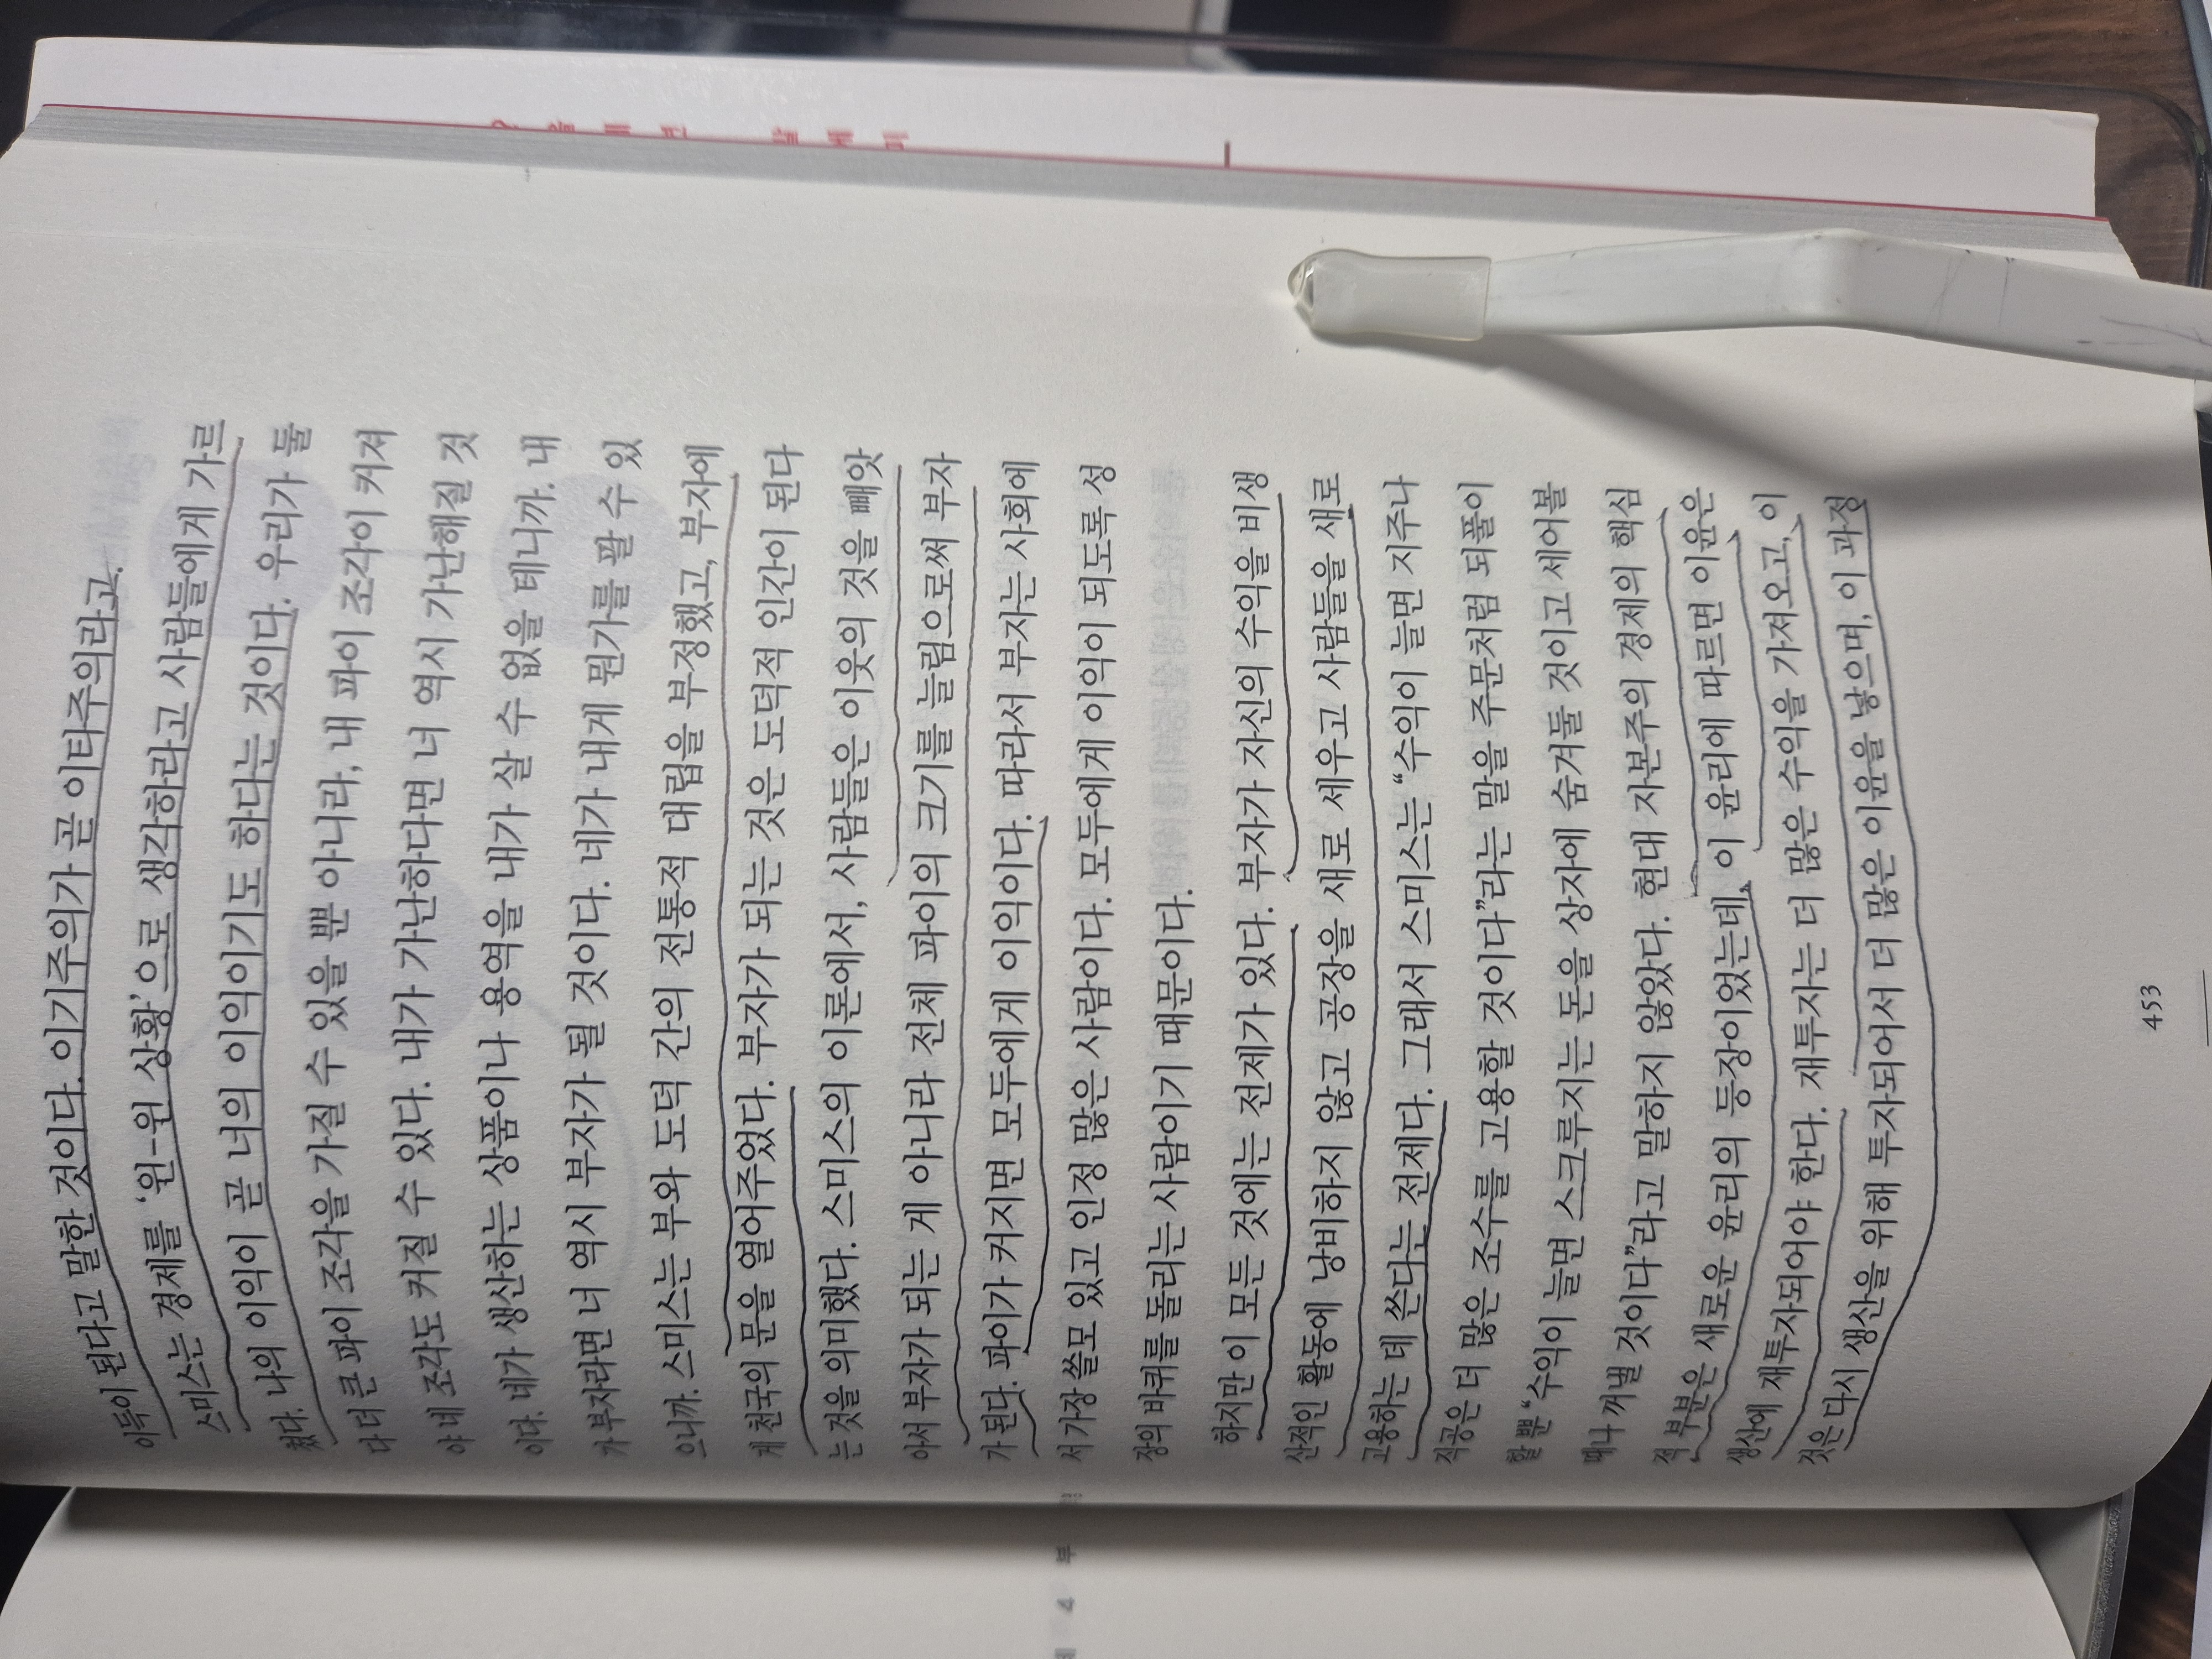 이득이 된다고 말한 것이다. 이기주의가 곧 이타주의라고.
스미스는 경제를 ‘윈-윈 상황’으로 생각하라고 사람들에게 가르
쳤다. 나의 이익이 곧 너의 이익이기도 하다는 것이다. 우리가 둘
다 더 큰 파이 조각을 가질 수 있을 뿐 아니라, 내 파이 조각이 커져
야 네 조각도 커질 수 있다. 내가 가난하다면 너 역시 가난해질 것
이다. 네가 생산하는 상품이나 용역을 내가 살 수 없을 테니까. 내
가 부자라면 너 역시 부자가 될 것이다. 네가 내게 뭔가를 팔 수 있
으니까. 스미스는 부와 도덕 간의 전통적 대립을 부정했고, 부자에
게 천국의 문을 열어주었다. 부자가 되는 것은 도덕적 인간이 된다
는 것을 의미했다. 스미스의 이론에서, 사람들은 이웃의 것을 빼앗
아서 부자가 되는 게 아니라 전체 파이의 크기를 늘림으로써 부자
가 된다. 파이가 커지면 모두에게 이익이다. 따라서 부자는 사회에
서 가장 쓸모 있고 인정 많은 사람이다. 모두에게 이익이 되도록 성
장의 바퀴를 돌리는 사람이기 때문이다.
하지만 이 모든 것에는 전제가 있다. 부자가 자신의 수익을 비생
산적인 활동에 낭비하지 않고 공장을 새로 세우고 사람들을 새로
고용하는 데 쓴다는 전제다. 그래서 스미스는 “수익이 늘면 지주나
직공은 더 많은 조수를 고용할 것이다”라는 말을 주문처럼 되풀이
할 뿐 “수익이 늘면 스크루지는 돈을 상자에 숨겨둘 것이고 세어볼
때나 꺼낼 것이다”라고 말하지 않았다. 현대 자본주의 경제의 핵심
적 부분은 새로운 윤리의 등장이었는데, 이 윤리에 따르면 이윤은
생산에 재투자되어야 한다. 재투자는 더 많은 수익을 가져오고, 이
것은 다시 생산을 위해 투자되어서 더 많은 이윤을 낳으며, 이 과정
453
4 부